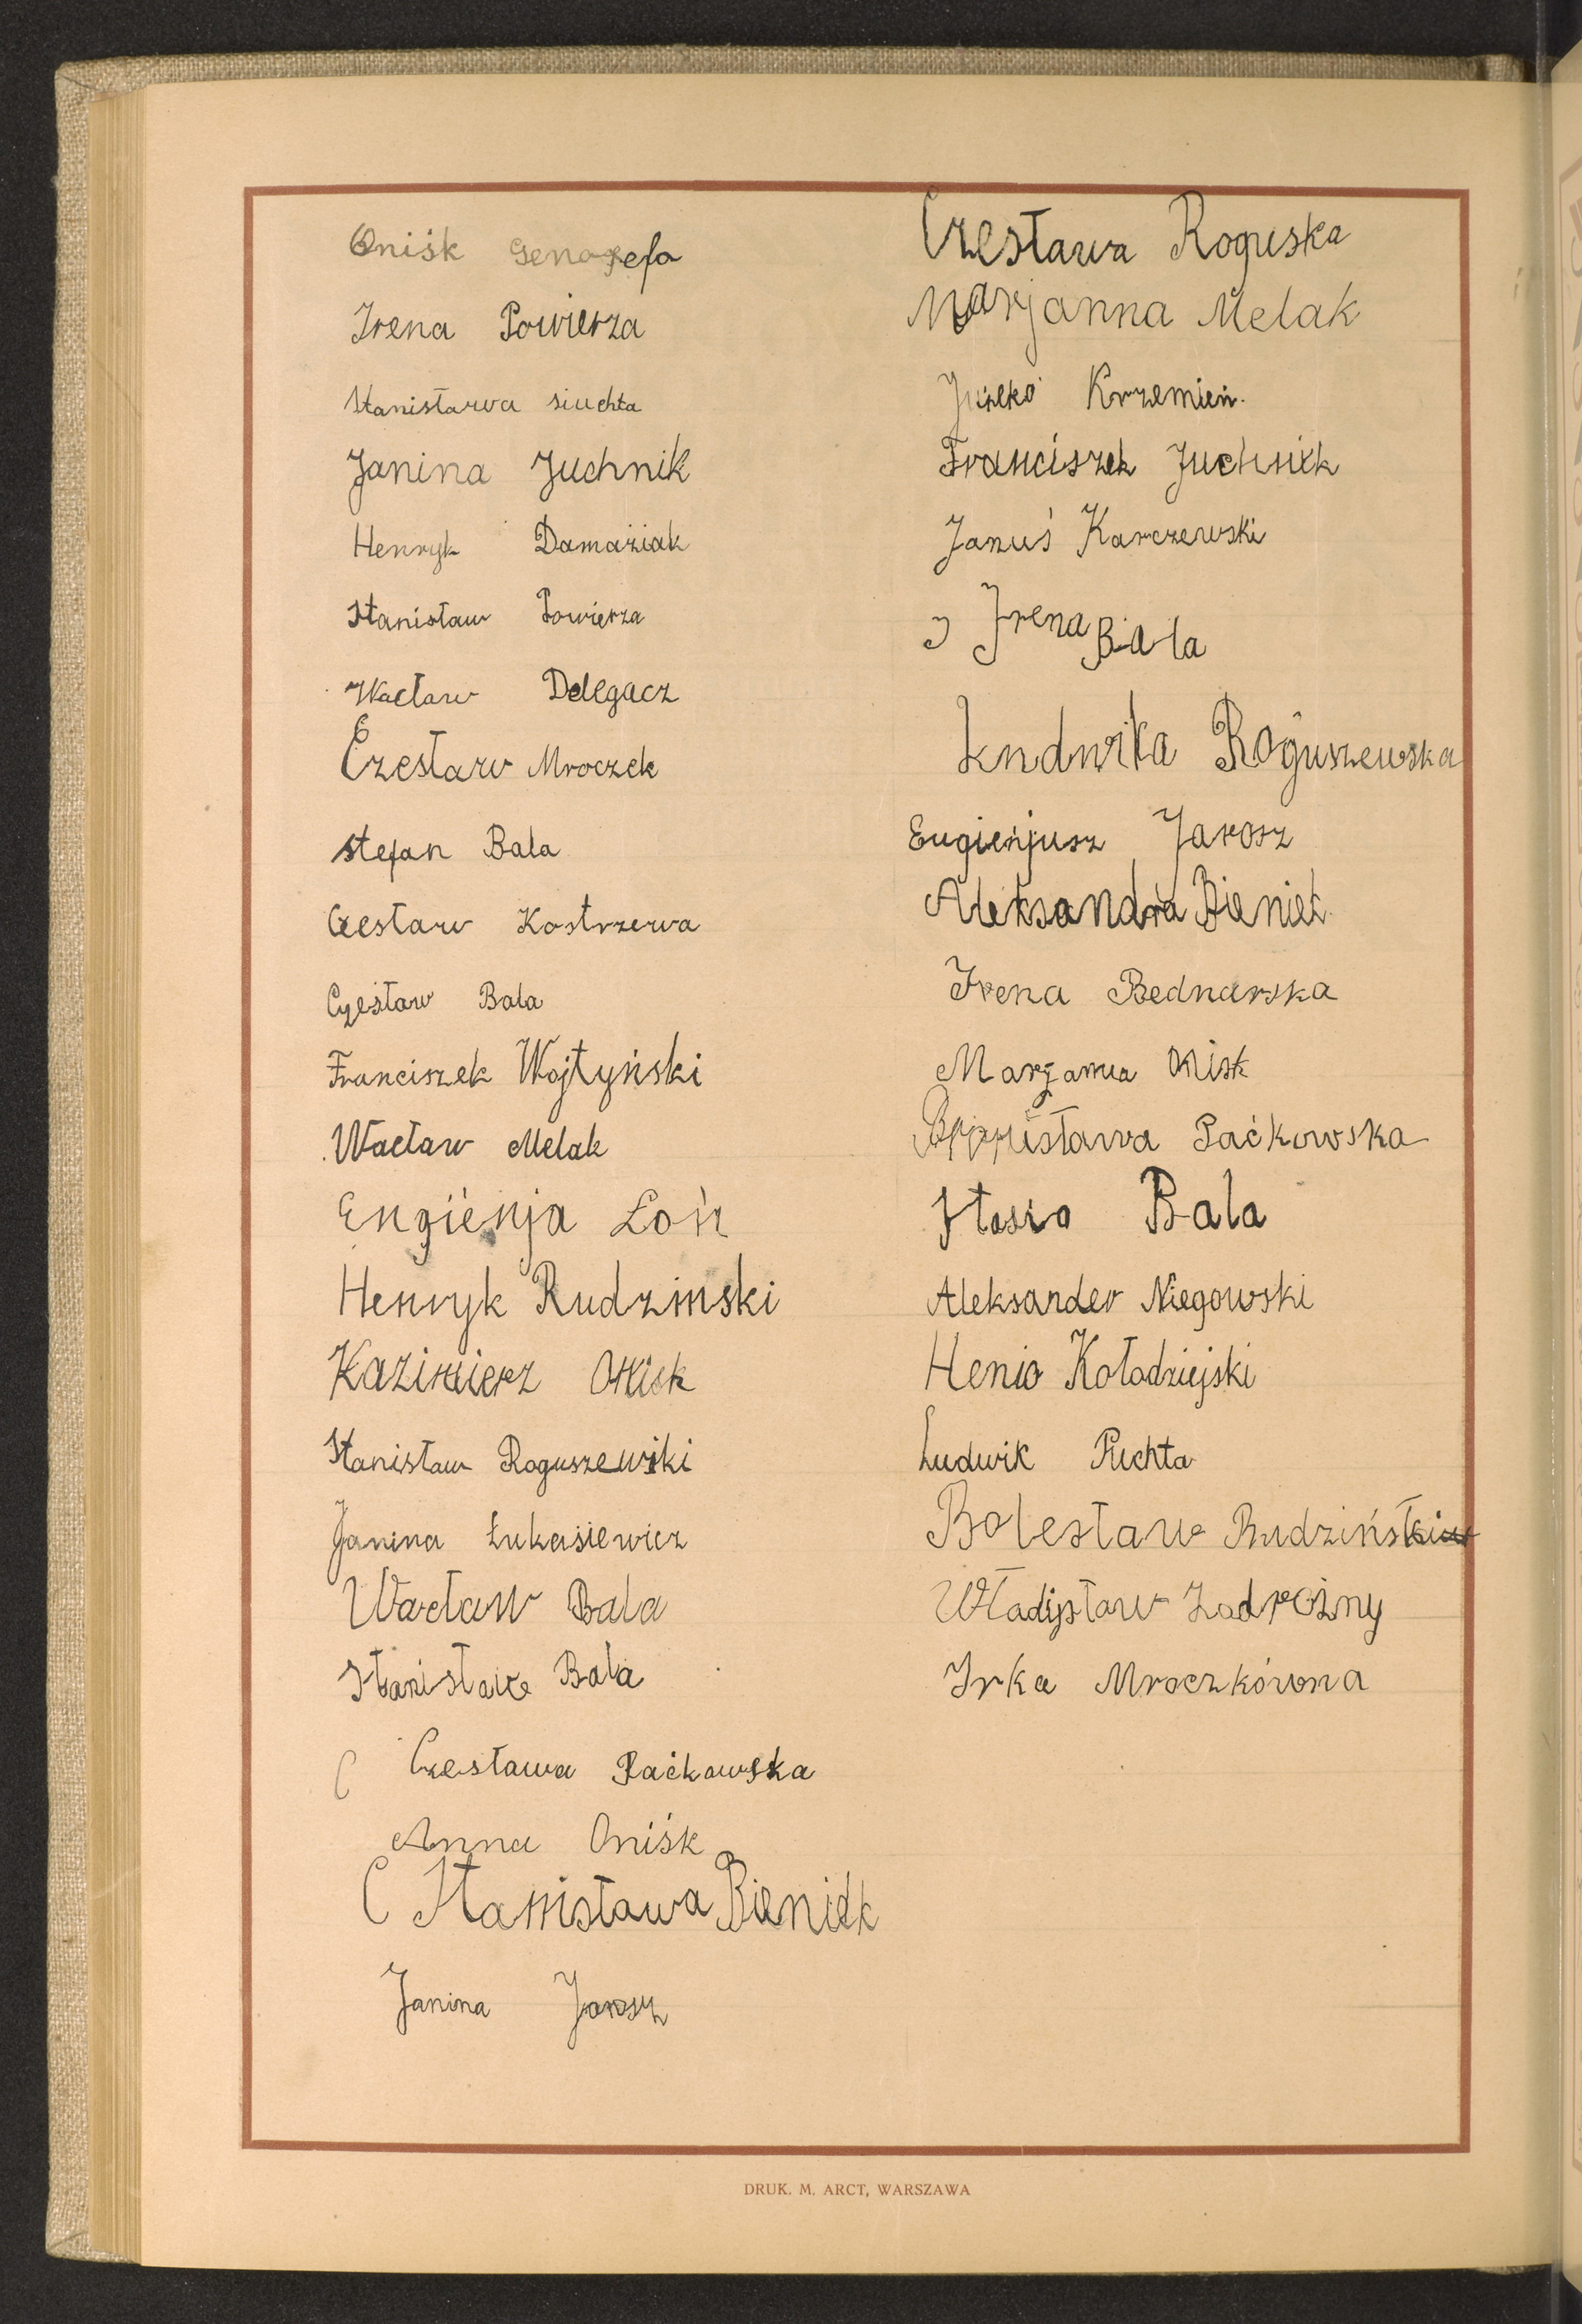 Oniśk Genozefa
Irena Powierza
Stanisława siuchta
Janina Juchnik
Henryk Damaziak
Stanisław Powierza
Wacław Delegacz
Czesław Mroczek
Stefan Bala
Czesław Kostrzewa
Czesław Bala
Franciszek Wojtyński
Wacław Melak
Engienja Łoń
Henryk Rudzinski
Kazimierz Onisk
Stanisław Roguszewski
Janina Łukasiewicz
Wacław Bala
Stanisław Bala
Czesława Packowska
Anna Oniśk
Stanisława Bieniek
Janina Jarosz
Czesława Roguska
Marjanna Melak
Krzemień.
Franciszek Juchnik
Januś Karczewski
Irena Bala
Ludwika Roguszewska
Eugienjusz Jarosz
Aleksandra Bieniek
Irena Bednarska
Marjanna Onisk
Paćkowska
Stasio Bala
Aleksander Niegowski
Henio Kołodziejski
Ludwik Puchta
Bolesław Rudziński
Władysław Zadrożny
Irka Mroczkówna
DRUK. M. ARCT, WARSZAWA